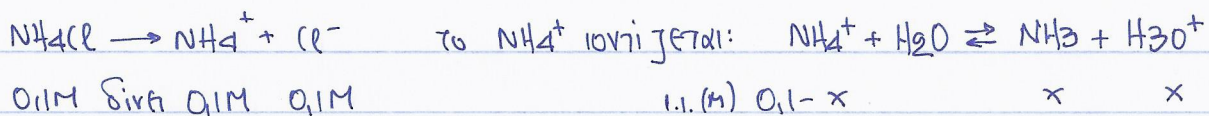 NH4Cl → NH4⁺ + Cl⁻ το NH4⁺ ιοντίζεται: NH4⁺ + H2O ⇄ NH3 + H3O⁺
0,1M δίνει 0,1M 0,1M ι.ι. (M) 0,1-x x x